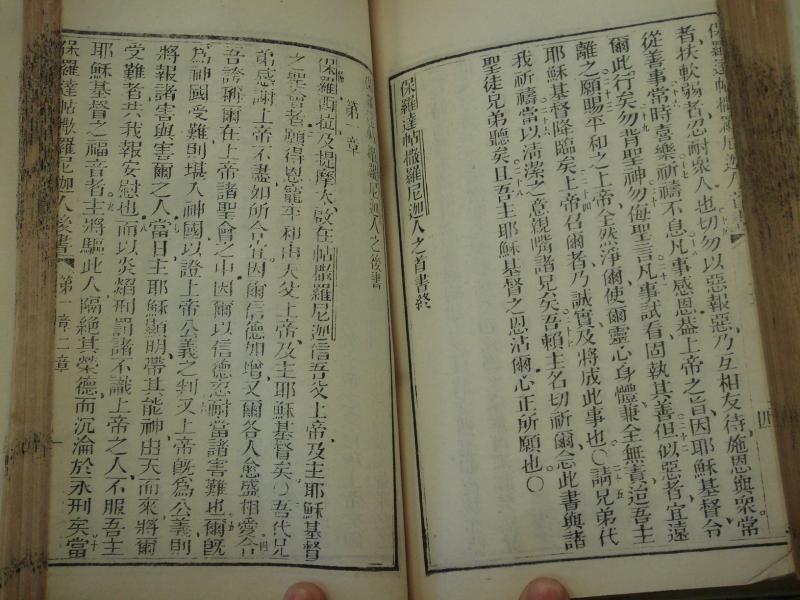 保羅達帖撒羅尼迦人首書 四
者、扶軟弱者、忍耐眾人也切勿以惡報惡、乃互相友待、施恩與眾、常
從善事常時喜樂、祈禱不息、凡事感恩、蓋上帝之旨、因耶穌基督令
爾此行矣勿背聖神勿侮聖言凡事試看固執其善但似惡者宜遠
離之願賜平和之上帝、全然淨爾、使爾靈心身體兼全無責、迨吾主
耶穌基督降臨矣上帝召爾者、乃誠實、及將成此事也〇請兄弟代
我祈禱當以清潔之意親嘴諸兄矣吾賴主名切祈爾念此書與諸
聖徒兄弟聽矣且吾主耶穌基督之恩沾爾心正所願也〇
保羅達帖撒羅尼迦人之首書終
保羅達帖撒羅尼迦人之後書
第一章
保羅西拉及提摩太、啟在帖撒羅尼迦、信吾父上帝、及主耶穌基督
之聖會者願得恩寵平和由天父上帝、及主耶穌基督矣〇吾代兄
弟感謝上帝不盡如所合宜、因爾信德加增、又爾各人愈盛相愛合
吾誇稱爾在上帝諸聖會之中、因爾以信德忍耐當諸害難也爾既
為神國受難、則堪入神國、以證上帝公義之判又上帝既為公義則
將報諸害與害爾之人當日主耶穌顯明帶其能神由天而來、將爾
受難者共我報安慰也而以炎焰刑罰諸不識上帝之人、不服吾主
耶穌基督之福音者主將驅此人隔絕其榮德而沉淪於永刑矣當
保羅達帖撒羅尼迦人後書 第一章二章 一